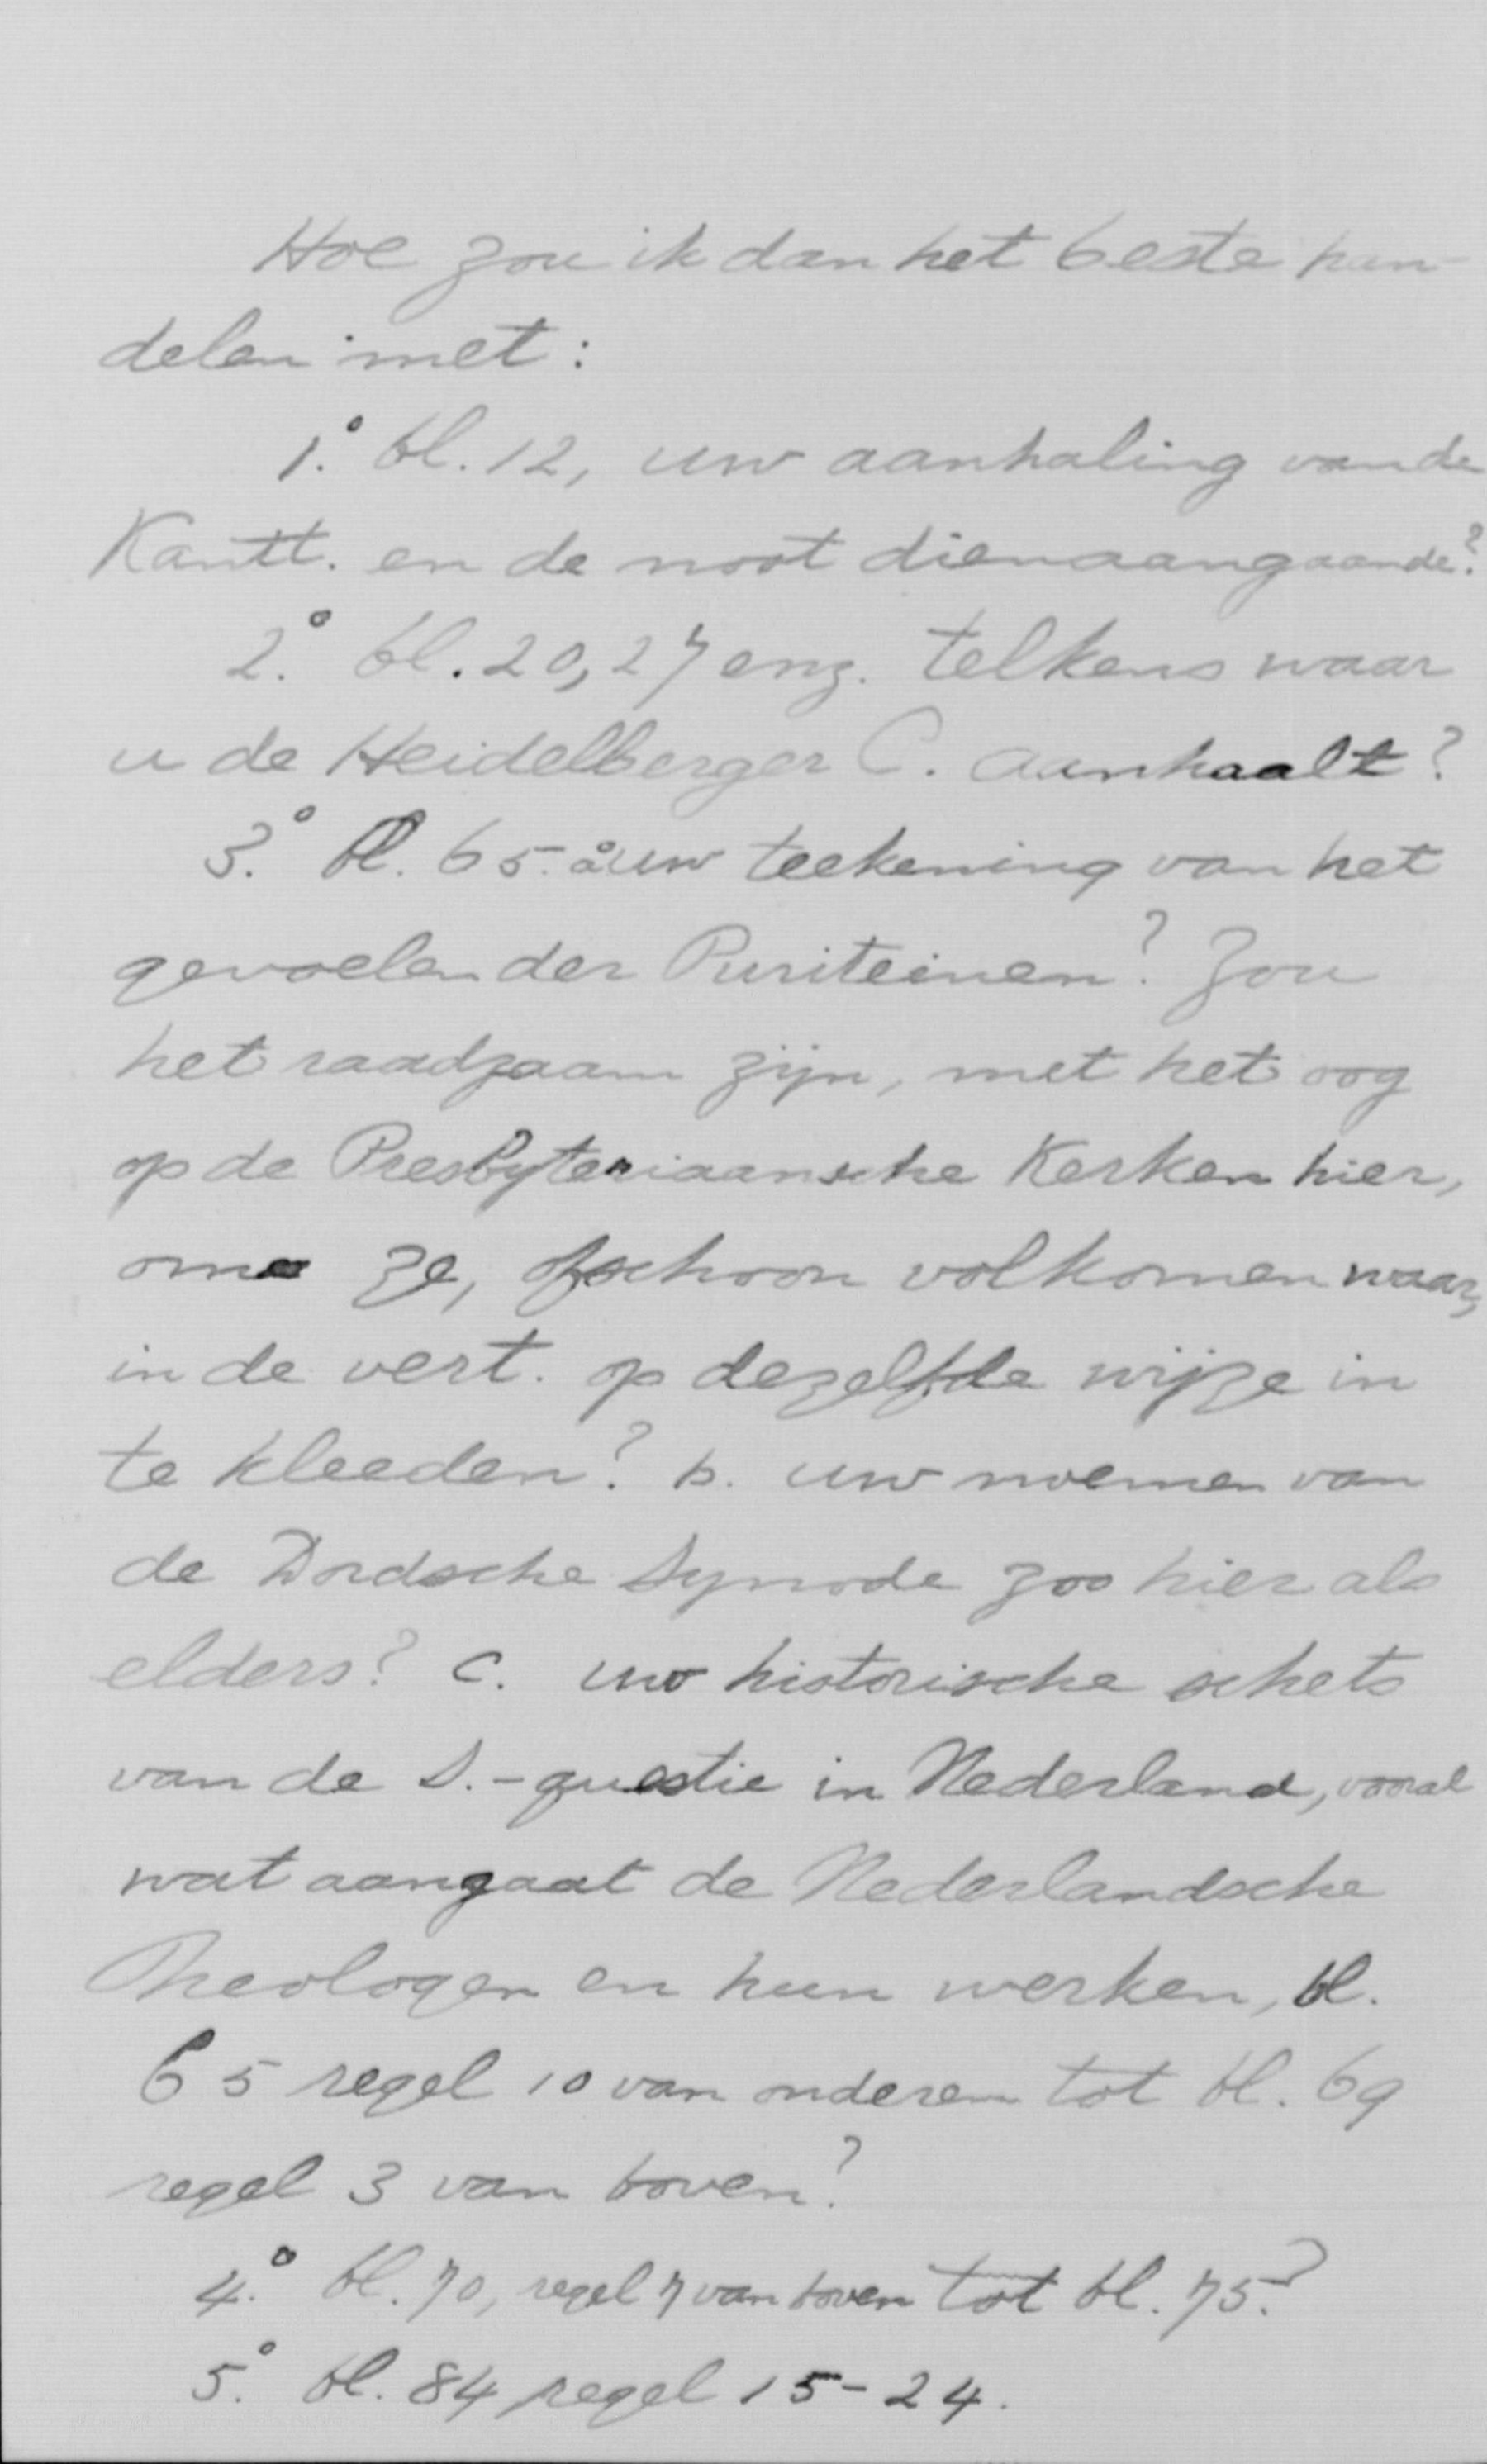 Hoe zou ik dan het beste han-
delen met:
1.° bl. 12, uw aanhaling van de
Kantt. en de noot dienaangaande?
2.° bl. 20, 27 enz. telkens waar
u de Heidelberger C. aanhaalt?
3.° bl. 65. a uw teekening van het
gevoelen der Puriteinen? Zou
het raadzaam zijn, met het oog
op de Presbyteriaansche Kerken hier,
om ze, ofschoon volkomen waar,
in de vert. op dezelfde wijze in
te kleeden? b. uw noemen van
de Dordsche Synode zoo hier als
elders? c. uw historische schets
van de S.-questie in Nederland, vooral
wat aangaat de Nederlandsche
Theologen en hun werken, bl.
65 regel 10 van onderen tot bl. 69
regel 3 van boven?
4.° bl. 70, regel 7 van boven tot bl. 75?
5.° bl. 84 regel 15-24.